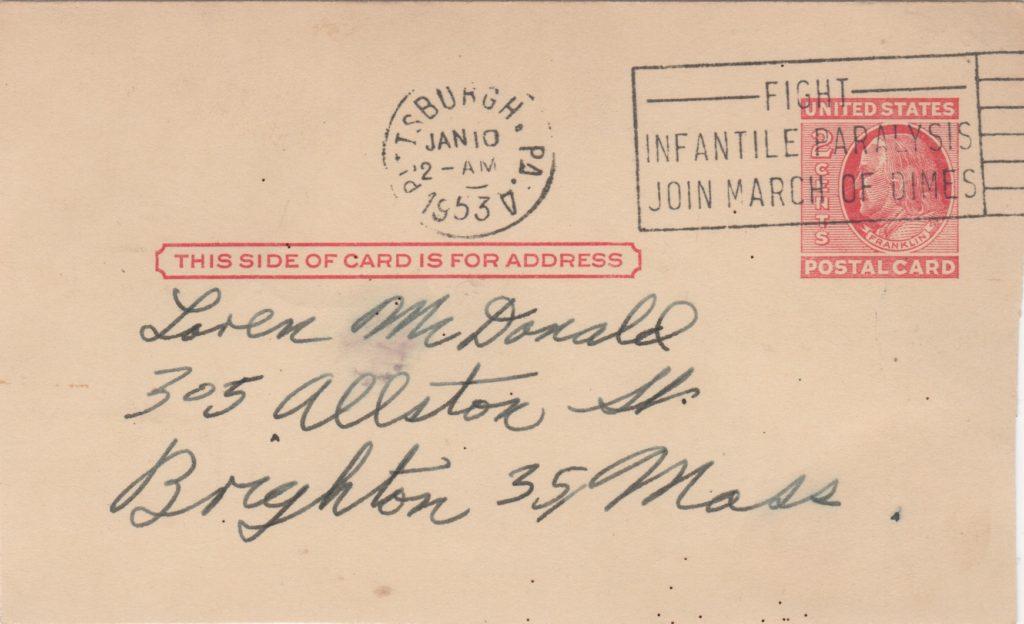 PITTSBURGH, PA. A
JAN 10
2 - AM
1953
FIGHT
INFANTILE PARALYSIS
JOIN MARCH OF DIMES
UNITED STATES
2 CENTS
FRANKLIN
POSTAL CARD
THIS SIDE OF CARD IS FOR ADDRESS
Loren McDonald
305 Allston St.
Brighton 35, Mass.